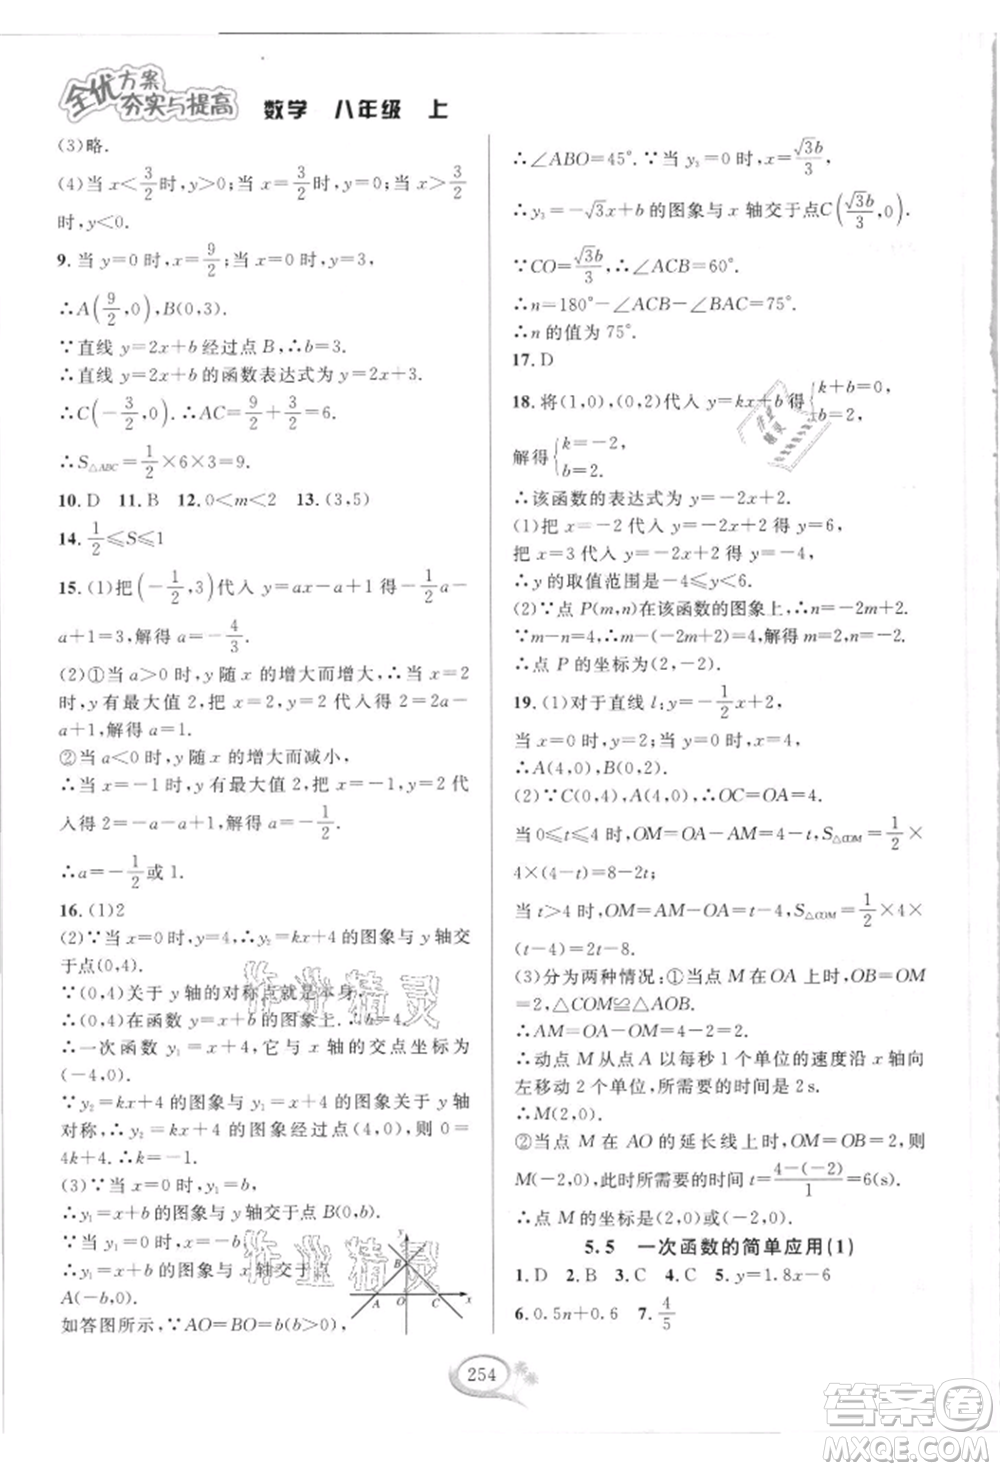 全优方案
夯实与提高 数学 八年级 上
(3)略.
(4)当 x<3/2时,y>0;当 x=3/2时,y=0;当 x>3/2
时,y<0.
9.当 y=0 时,x=9/2;当 x=0 时,y=3,
∴A(9/2,0),B(0,3).
∵直线 y=2x+b 经过点 B,∴b=3.
∴直线 y=2x+b 的函数表达式为 y=2x+3.
∴C(-3/2,0).∴AC=9/2+3/2=6.
∴S△ABC=1/2×6×3=9.
10.D 11.B 12.0<m<2 13.(3,5)
14.1/2≤S≤1
15.(1)把(-1/2,3)代入 y=ax-a+1 得-1/2a-
a+1=3,解得 a=-4/3.
(2)①当 a>0 时,y 随 x 的增大而增大,∴当 x=2
时,y 有最大值 2,把 x=2,y=2 代入得 2=2a-
a+1,解得 a=1.
②当 a<0 时,y 随 x 的增大而减小,
∴当 x=-1 时,y 有最大值 2,把 x=-1,y=2 代
入得 2=-a-a+1,解得 a=-1/2.
∴a=-1/2或 1.
16.(1)2
(2)∵当 x=0 时,y=4,∴y₂=kx+4 的图象与 y轴交
于点(0,4).
∵(0,4)关于 y 轴的对称点就是本身,
∴(0,4)在函数 y₁=x+b 的图象上.∴b=4.
∴一次函数 y₁=x+4,它与 x 轴的交点坐标为
(-4,0).
∵y₂=kx+4 的图象与 y₁=x+4 的图象关于 y 轴
对称,∴y₂=kx+4 的图象经过点(4,0),则 0=
4k+4,∴k=-1.
(3)∵当 x=0 时,y₁=b,
∴y₁=x+b 的图象与 y 轴交于点 B(0,b).
∵当 y₁=0 时,x=-b,
∴y₁=x+b 的图象与 x 轴交于点
A(-b,0).
如答图所示,∵AO=BO=b(b>0),
y
B
A O C x
∴∠ABO=45°.∵当 y₃=0 时,x=√3b/3,
∴y₃=-√3x+b 的图象与 x 轴交于点C(√3b/3,0).
∵CO=√3b/3,∴∠ACB=60°.
∴n=180°-∠ACB-∠BAC=75°.
∴n 的值为 75°.
17.D
18.将(1,0),(0,2)代入 y=kx+b 得{k+b=0, b=2,
解得{k=-2, b=2.
∴该函数的表达式为 y=-2x+2.
(1)把 x=-2 代入 y=-2x+2 得 y=6,
把 x=3 代入 y=-2x+2 得 y=-4,
∴y 的取值范围是-4≤y<6.
(2)∵点 P(m,n)在该函数的图象上,∴n=-2m+2.
∵m-n=4,∴m-(-2m+2)=4,解得 m=2,n=-2.
∴点 P 的坐标为(2,-2).
19.(1)对于直线 l:y=-1/2x+2,
当 x=0时,y=2;当 y=0时,x=4,
∴A(4,0),B(0,2).
(2)∵C(0,4),A(4,0),∴OC=OA=4.
当 0≤t≤4 时,OM=OA-AM=4-t,S△COM=1/2×
4×(4-t)=8-2t;
当 t>4 时,OM=AM-OA=t-4,S△COM=1/2×4×
(t-4)=2t-8.
(3)分为两种情况:①当点 M 在 OA 上时,OB=OM
=2,△COM≌△AOB.
∴AM=OA-OM=4-2=2.
∴动点 M 从点 A 以每秒 1 个单位的速度沿 x 轴向
左移动 2 个单位,所需要的时间是 2 s.
∴M(2,0).
②当点 M 在 AO 的延长线上时,OM=OB=2,则
M(-2,0).此时所需要的时间 t=4-(-2)/1=6(s).
∴点 M 的坐标是(2,0)或(-2,0).
5.5 一次函数的简单应用(1)
1.D 2.B 3.C 4.C 5.y=1.8x-6
6.0.5n+0.6 7.4/5
254
作业精灵
作业精灵
作业精灵
答案圈
MXQE.COM